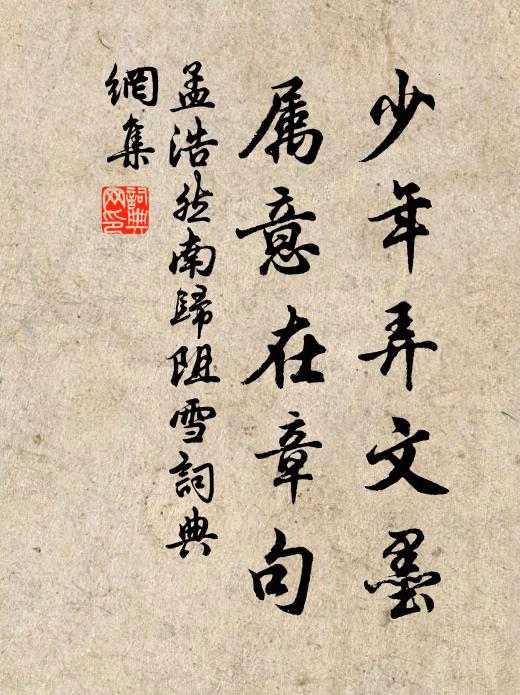 少年弄文墨
属意在章句
孟浩然南歸阻雪詞典
網集
詞典
网印